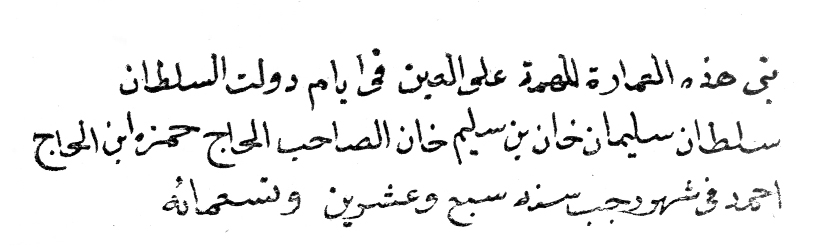 بنى هذه العمارة للهمة على الدين فى ايام دولت السلطان
سلطان سليمان خان بن سليم خان الصاحب الحاج حمزه ابن الحاج
احمد فى شهر رجب سنه سبع وعشرين وتسعمائه